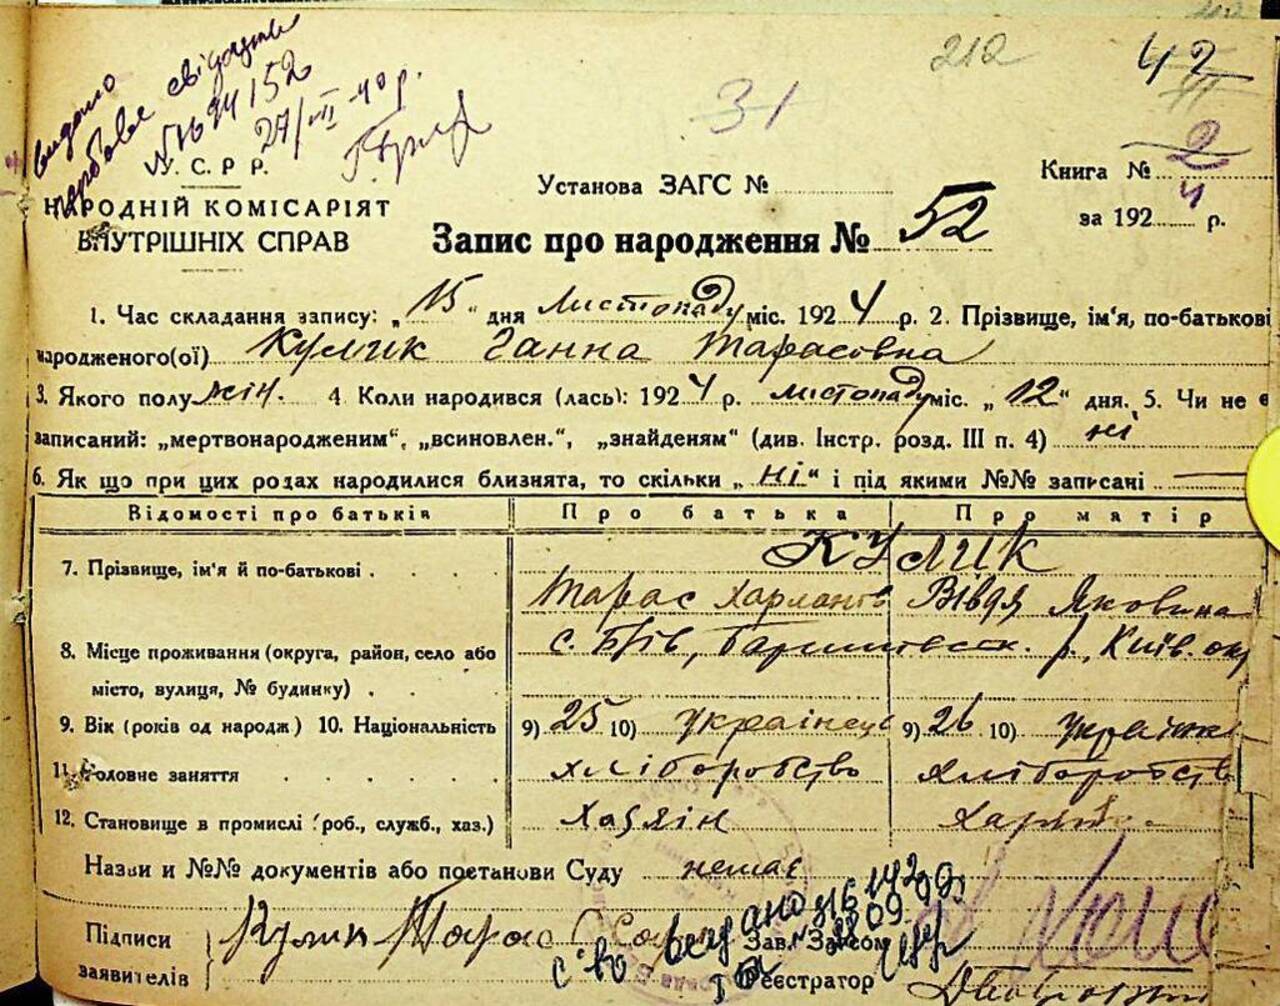 212
42
31
видано
свідоцтво
27/VII-40 р.
У. С. Р Р.
НАРОДНІЙ КОМІСАРІЯТ
ВНУТРІШНІХ СПРАВ
Установа ЗАГС №
Книга № 2
за 1924 р.
Запис про народження № 52
1. Час складання запису: „15“ дня Листопаду міс. 1924 р. 2. Прізвище, ім'я, по-батькові
народженого(ої) Кулик Ганна Тарасовна
3. Якого полу жін. 4. Коли народився (лась): 1924 р. листопаду міс. „12“ дня. 5. Чи не є
записаний: „мертвонародженим“, „всиновлен.“, „знайденям“ (див. Інстр. розд. III п. 4) ні
6. Як що при цих родах народилися близнята, то скільки „ні“ і під якими №№ записані —
Відомості про батьків Про батька Про матір
КУЛИК
7. Прізвище, ім'я й по-батькові
Тарас Вівдя Яковина
8. Місце проживання (округа, район, село або с. Київ. окр
місто, вулиця, № будинку)
9. Вік (років од народж) 10. Національність 9) 25 10) українець 9) 26 10)
11. Головне заняття хліборобство хліборобств
12. Становище в промислі (роб., служб., хаз.) хазяін
Назви и №№ документів або постанови Суду немає
Підписи Кулик Тарас
заявителів
Зав. Загсом
Реєстратор